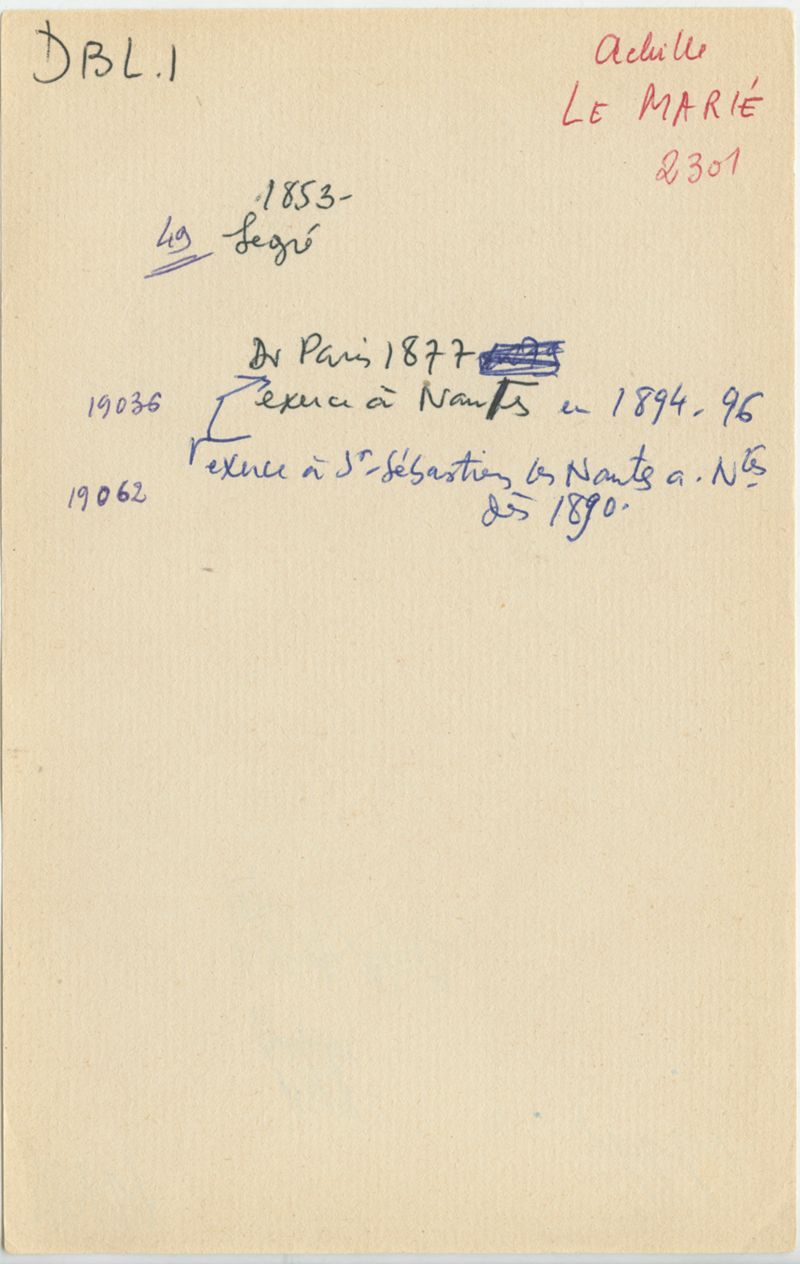 DBL.1
Achille
LE MARIÉ
2301
1853-
49 Segré
Dr Paris 1877
19036 exerce à Nantes en 1894-96
exerce à St-Sébastien les Nantes a. Ntes
19062 dès 1890.